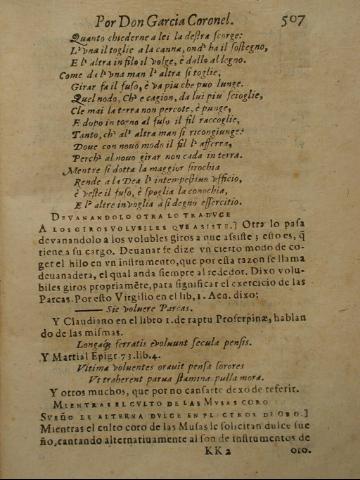 Por Don Garcia Coronel. 507
Quanto chiederne a lei la destra scorge:
L'vna il toglie a la canna, ond' ha il sostegno,
E l' altra in filo il volge, è dallo al legno.
Come da l' vna man l' altra si toglie,
Girar fa il fuso, è va piu che puo lunge.
Quel nodo, Ch' è cagion, da lui piu scioglie,
Che mai la terra non percote, è punge,
E dopo in torno al fuso il fil raccoglie,
Tanto, ch' al' altra man si ricongiunge:
Doue con nouo modo il fil l' afferra,
Perch' al nouo girar non cada in terra.
Mentre si dotta la maggior sirochia
Rende a la Dea l' intempestiuo vfficio,
è veste il fuso, è spoglia la conochia,
E l' altre in voglia à si degno essercitio.
DEVANANDOLO OTRA LO TRADVCE
A LOS GIROS VOLVBILES QVE ASISTE.] Otra lo pasa
devanandolo a los volubles giros a que asiste; esto es, q̃
tiene a su cargo. Deuanar se dize vn cierto modo de co-
ger el hilo en vn instrumento, que por esta razon se llama
deuanadera, el qual anda siempre al rededor. Dixo volu-
biles giros propriamẽte, para significar el exercicio de las
Parcas. Por esto Virgilio en el lib, 1. Aen. dixo:
—— Sic voluere Parcas.
Y Claudiano en el libro 1. de raptu Proserpinæ, hablan
do de las mismas.
Longaq; ferratis evoluunt secula pensis.
Y Martial Epigr 73. lib. 4.
Vltima voluentes orauit pensa sorores
Vt traherent parua stamina pulla mora.
Y otros muchos, que por no cansarte dexo de referir.
MIENTRAS EL CVLTO DE LAS MVSAS CORO
SVEÑO LE ALTERNA DVLCE EN PLECTROS DE ORO.]
Mientras el culto coro de las Musas le solicitan dulce sue
ño, cantando alternatiuamente al son de instrumentos de
KK 2 oro.